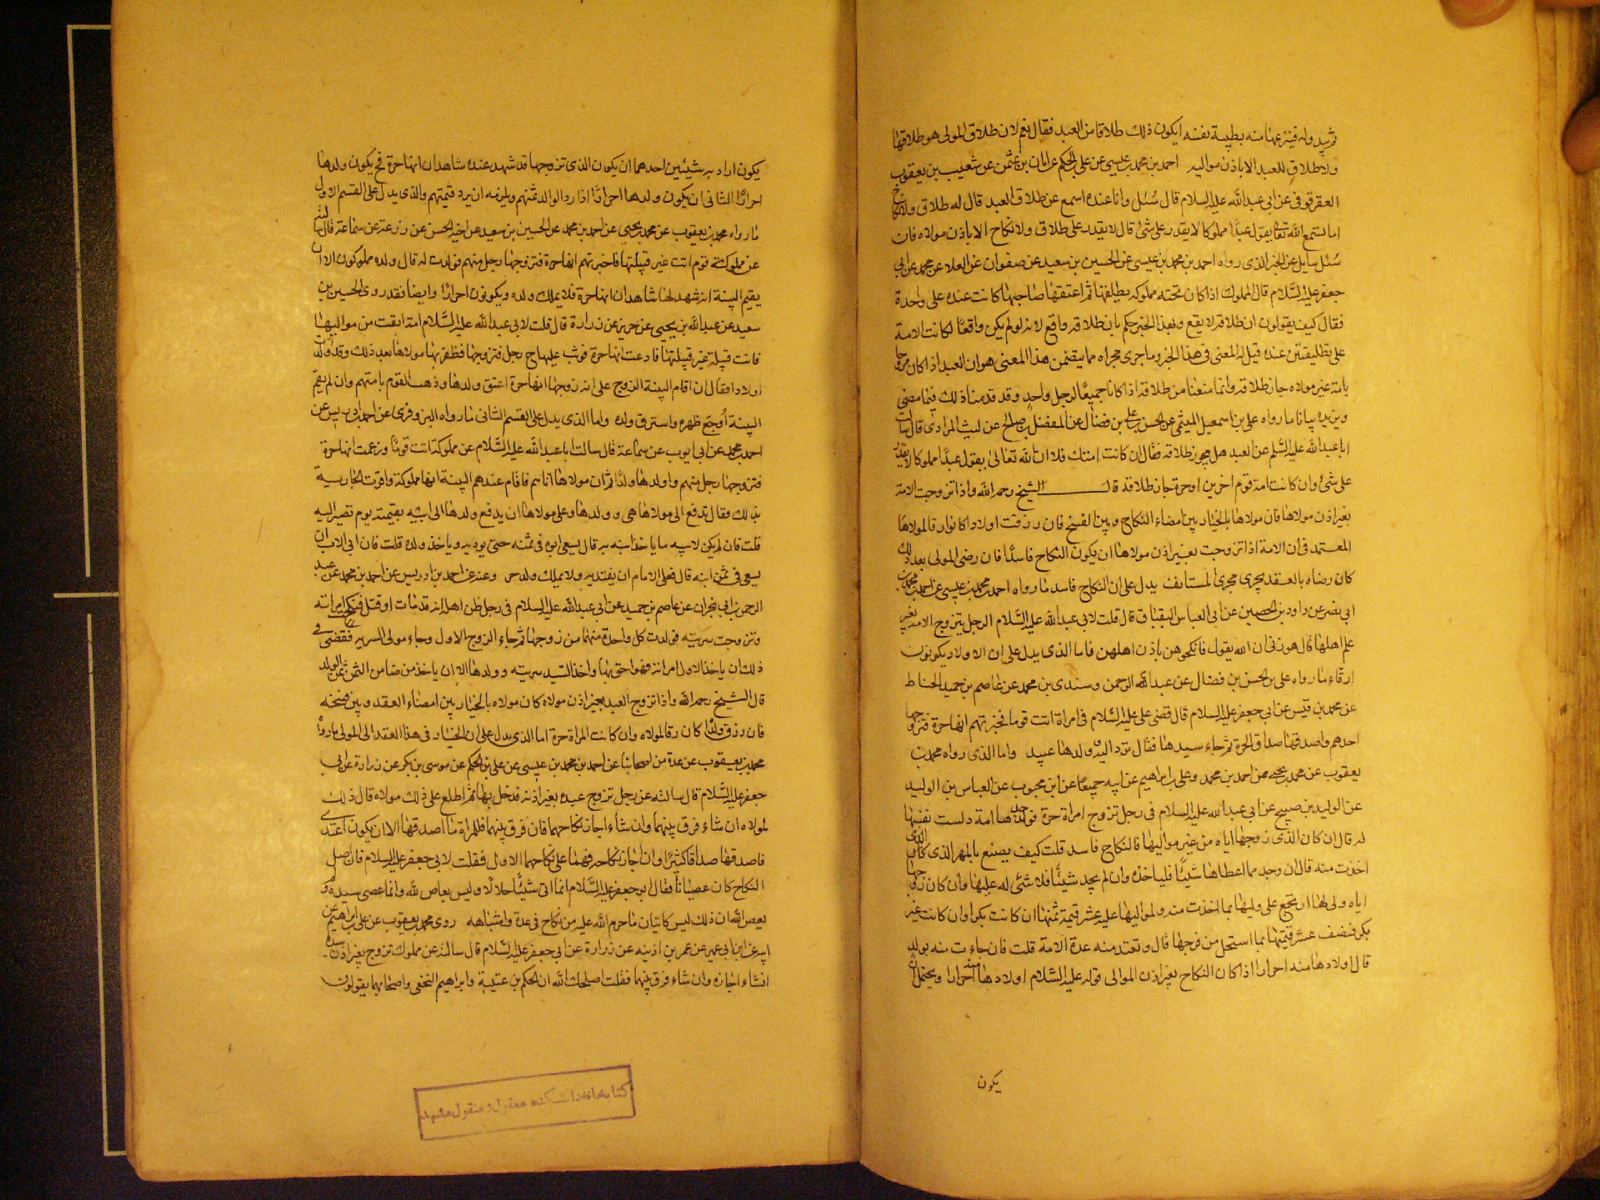 ثم يبدو له فينزعها منه بطيبة نفسه ايكون ذلك طلاقا من العبد فقال نعم لان طلاق المولى هو طلاقها
ولا طلاق للعبد الا باذن مواليه احمد بن محمد بن عيسى عن علي بن الحكم عن ابان بن عثمن عن شعيب بن يعقوب
العقرقوفى عن ابى عبد الله عليه السلام قال سئل وانا عنده اسمع عن طلاق العبد قال له طلاق ولا نكاح
اما تسمع الله تعالى يقول عبدا مملوكا لا يقدر على شئ قال لا يقدر على طلاق ولا نكاح الا باذن مولاه فان
سئل سايل عن الخبر الذى رواه احمد بن محمد بن عيسى عن الحسين بن سعيد عن صفوان عن العلا عن محمد عن ابى
جعفر عليه السلام قال المملوك اذا كان تحته مملوكة يطلقها ثم اعتقها صاحبها كانت عنده على واحدة
فقال كيف يقولون ان طلاقه لا يقع وبهذا الخبر حكم بان طلاقه واقع لانه لو لم يكن واقعا لكانت الامة
على تطليقتين عنده قيل له المعنى فى هذا الخبر وما جرى مجراه مما يتضمن هذا المعنى هو ان العبد اذا كان مزوجا
بامة غير مولاه جاز طلاقه وانما منعنا من طلاقه اذا كانا جميعا لرجل واحد وقد قدمنا ذلك فيما مضى
ويزيده بيانا ما رواه على بن اسمعيل الميثمى عن الحسن بن على بن فضال عن المفضل بن صالح عن ليث المرادى قال سالت
ابا عبد الله عليه السلم عن العبد هل يجوز طلاقه فقال ان كانت امتك فلا ان الله تعالى يقول عبدا مملوكا لا يقدر
على شئ وان كانت امة قوم اخرين او حرة جاز طلاقه قال الشيخ رحمه الله واذا تزوجت الامة
بغير اذن مولاها فان مولاها بالخيار بين امضاء النكاح وبين الفسخ فان رزقت اولادا كانوا رقا لمولاها
المعتمد فى ان الامة اذا تزوجت بغير اذن مولاها ان يكون النكاح فاسدا فان رضى المولى بعد ذلك
كان رضاه بالعقد يجرى مجرى المستانف يدل على ان النكاح فاسد ما رواه احمد بن محمد بن عيسى عن احمد بن محمد بن
ابى نصر عن داود بن الحصين عن ابى العباس البقباق قال قلت لابى عبد الله عليه السلام الرجل يتزوج الامة بغير
علم اهلها قال هو زنى ان الله يقول فانكحوهن باذن اهلهن فاما الذى يدل على ان الاولاد يكونون
ارقاء ما رواه على بن الحسن بن فضال عن عبد الرحمن وسندى بن محمد عن عاصم بن حميد الحناط
عن محمد بن قيس عن ابى جعفر عليه السلام قال قضى على عليه السلام فى امراة اتت قوما فخبرتهم انها حرة فتزوجها
احدهم واصدقها صداق الحرة ثم جاء سيدها فقال ترد اليه وولدها عبيد واما الذى رواه محمد بن
يعقوب عن محمد بن يحيى عن احمد بن محمد وعلى بن ابراهيم عن ابيه جميعا عن ابن محبوب عن العباس بن الوليد
عن الوليد بن صبيح عن ابى عبد الله عليه السلام فى رجل تزوج امراة حرة فوجدها امة دلست نفسها
له قال ان كان الذى زوجها اياه من غير مواليها فالنكاح فاسد قلت كيف يصنع بالمهر الذى
اخذت منه قال ان وجد مما اعطاها شيئا فلياخذه وان لم يجد شيئا فلا شئ له عليها وان كان زوجها
اياه ولى لها ارتجع على وليها بما اخذت منه ولمواليها عليه عشر قيمة ثمنها ان كانت بكرا وان كانت غير
بكر فنصف عشر قيمتها بما استحل من فرجها قال وتعتد منه عدة الامة قلت فان جاءت منه بولد
قال اولادها منه احرارا اذا كان النكاح بغير اذن الموالى قوله عليه السلام اولادها منه احرارا ويحتمل ان
يكون
يكون اراد به شيئين احدهما ان يكون الذى تزوجها قد شهد عنده شاهدان انها حرة فح يكون ولدها
احرارا الثانى ان يكون ولدها احرارا اذا رد الوالد ثمنهم ويلزمه ان يرد قيمتهم والذى يدل على القسم الاول
ما رواه محمد بن يعقوب عن محمد بن يحيى عن احمد بن محمد عن الحسين بن سعيد عن اخيه الحسن عن زرعة عن سماعة قال سالته
عن مملوكة قوم اتت غير قبيلتها فاخبرتهم انها حرة فتزوجها رجل منهم فولدت له قال ولده مملوكون الا ان
يقيم البينة انه شهد لها شاهدان انها حرة فلا يملك ولده ويكونون احرارا وايضا فقد روى الحسين بن
سعيد عن عبد الله بن يحيى عن حريز عن زرارة قال قلت لابى عبد الله عليه السلام امة ابقت من مواليها
فاتت قبيلة غير قبيلتها فادعت انها حرة فوثب عليها ح رجل فتزوجها فظفر بها مولاها بعد ذلك وقد ولدت
اولادا فقال ان اقام البينة الزوج على انه تزوجها انها حرة اعتق ولدها وذهب القوم بامتهم وان لم يقم
البينة اوجع ظهره واسترق ولده واما الذى يدل على القسم الثانى ما رواه البزوفرى عن احمد بن ادريس عن
احمد بن محمد عن ابى ايوب عن سماعة قال سالت ابا عبد الله عليه السلام عن مملوكة اتت قوما وزعمت انها حرة
فتزوجها رجل منهم واولدها ولدا ثم ان مولاها اتاهم فاقام عندهم البينة انها مملوكة واقرت الجارية
بذلك فقال تدفع الى مولاها هى وولدها وعلى مولاها ان يدفع ولدها الى ابيه بقيمته يوم تصير اليه
قلت فان لم يكن لابيه ما ياخذ ابنه به قال يسعى ابوه فى ثمنه حتى يوديه وياخذ ولده قلت فان ابى الاب ان
يسعى فى ثمن ابنه قال فعلى الامام ان يفتديه ولا يملك ولد حر وعنه عن احمد بن ادريس عن احمد بن محمد عن عبد
الرحمن بن ابى نجران عن عاصم بن حميد عن ابى عبد الله عليه السلام فى رجل ظن اهله انه قد مات او قتل فنكحت امراته
وتزوجت سريته فولدت كل واحدة منهما من زوجها ثم جاء الزوج الاول وجاء مولى السرية فقضى فى
ذلك ان ياخذ الاول امراته فهو احق بها وياخذ السيد سريته وولدها الا ان ياخذ من رضا من الثمن ثمن الولد
قال الشيخ رحمه الله واذا تزوج العبد بغير اذن مولاه كان مولاه بالخيار بين امضاء العقد وبين فسخه
فان رزق ولدا كان رقا لمولاه وان كانت المراة حرة اما الذى يدل على ان الخيار فى هذا العقد الى المولى ما رواه
محمد بن يعقوب عن عدة من اصحابنا عن احمد بن محمد بن عيسى عن على بن الحكم عن موسى بن بكر عن زرارة عن ابى
جعفر عليه السلام قال سالته عن رجل تزوج عبده بغير اذنه فدخل بها ثم اطلع على ذلك مولاه قال ذلك
لمولاه ان شاء فرق بينهما وان شاء اجاز نكاحهما فان فرق بينهما فللمراة ما اصدقها الا ان يكون اعتدى
فاصدقها صداقا كثيرا وان اجاز نكاحه فهما على نكاحهما الاول فقلت لابى جعفر عليه السلام فان اصل
النكاح كان عصيانا فقال ابو جعفر عليه السلام انما اتى شيئا حلالا وليس بعاص لله وانما عصى سيده ولم
يعص الله ان ذلك ليس كاتيان ما حرم الله عليه من نكاح فى عدة واشباهه روى محمد بن يعقوب عن على بن ابراهيم عن
ابيه عن ابن ابى عمير عن عمر بن اذينه عن زرارة عن ابى جعفر عليه السلام قال سالته عن مملوك تزوج بغير اذن سيده
ان شاء اجازه وان شاء فرق بينهما فقلت اصلحك الله ان الحكم بن عتيبة وابراهيم النخعى واصحابهما يقولون
كتابخانه دانشكده معقول و منقول مشهد